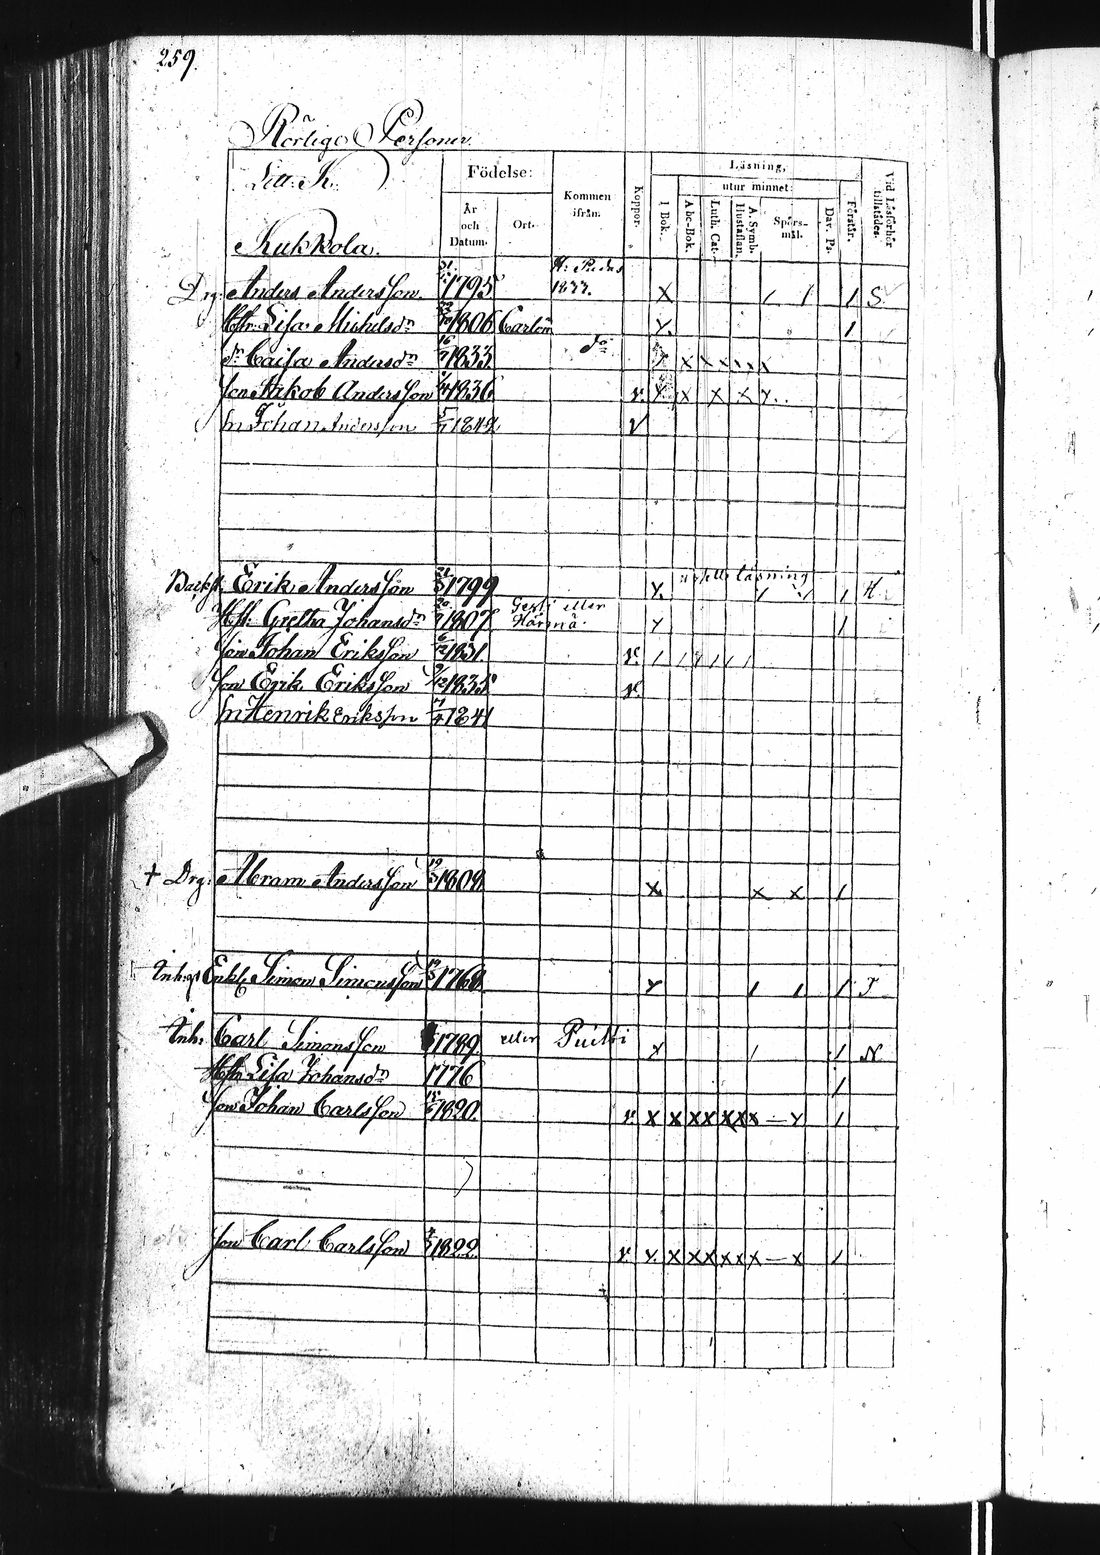 259.
Rörlige Personer.
Litt. K.
Kukkola.
Födelse:
År och Datum.
Ort.
Kommen ifrån.
Koppor.
Läsning,
utur minnet:
I Bok.
Abc-Bok.
Luth. Cat.
Hustaflan.
A. Symb.
Spörs-mål.
Dav. Ps.
Förstår.
Vid Läsförhör tillstädes.
Drg: Anders Andersson 1795 1833. X / / / S
Hstr. Lisa Michelsdr 1806 Carlön Y. /
dr Caisa Andersdr 16/7 1833 do
Son Jakob Andersson 1836 v.
Sn Johan Andersson 5/7 1842 V
Erik Andersson 1799 Y. läsning / / / H
Hst: Gretha Johansdr 1807 eller Härmä. Y /
Son Johan Eriksson 6/12 1831. v.
Son Erik Eriksson 9/12 1835 v.
Sn Henrik Eriksson 1841
+ Drg: Abram Andersson 1808. X X X /
Inhys Enkl. Simon Simonsson 1768. Y / / / T
Inh: Carl Simonsson 1789. eller Puitti X / / N
Hstr Lisa Johansdr 1776 /
Son Johan Carlsson 1820. v. X X XX XX X — Y /
Son Carl Carlsson 1822. v. Y. X XX XX X — X /